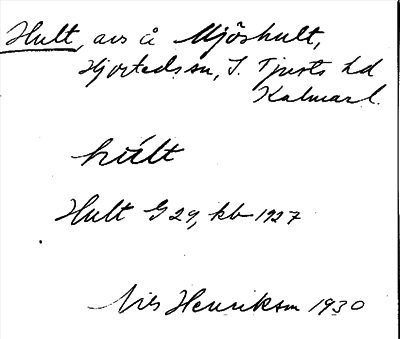 Hult, avs å Mjöshult,
Hjorteds sn, S. Tjusts hd
Kalmar l.
húlt
Hult G 29, kb 1927
Nils Henriksson 1930